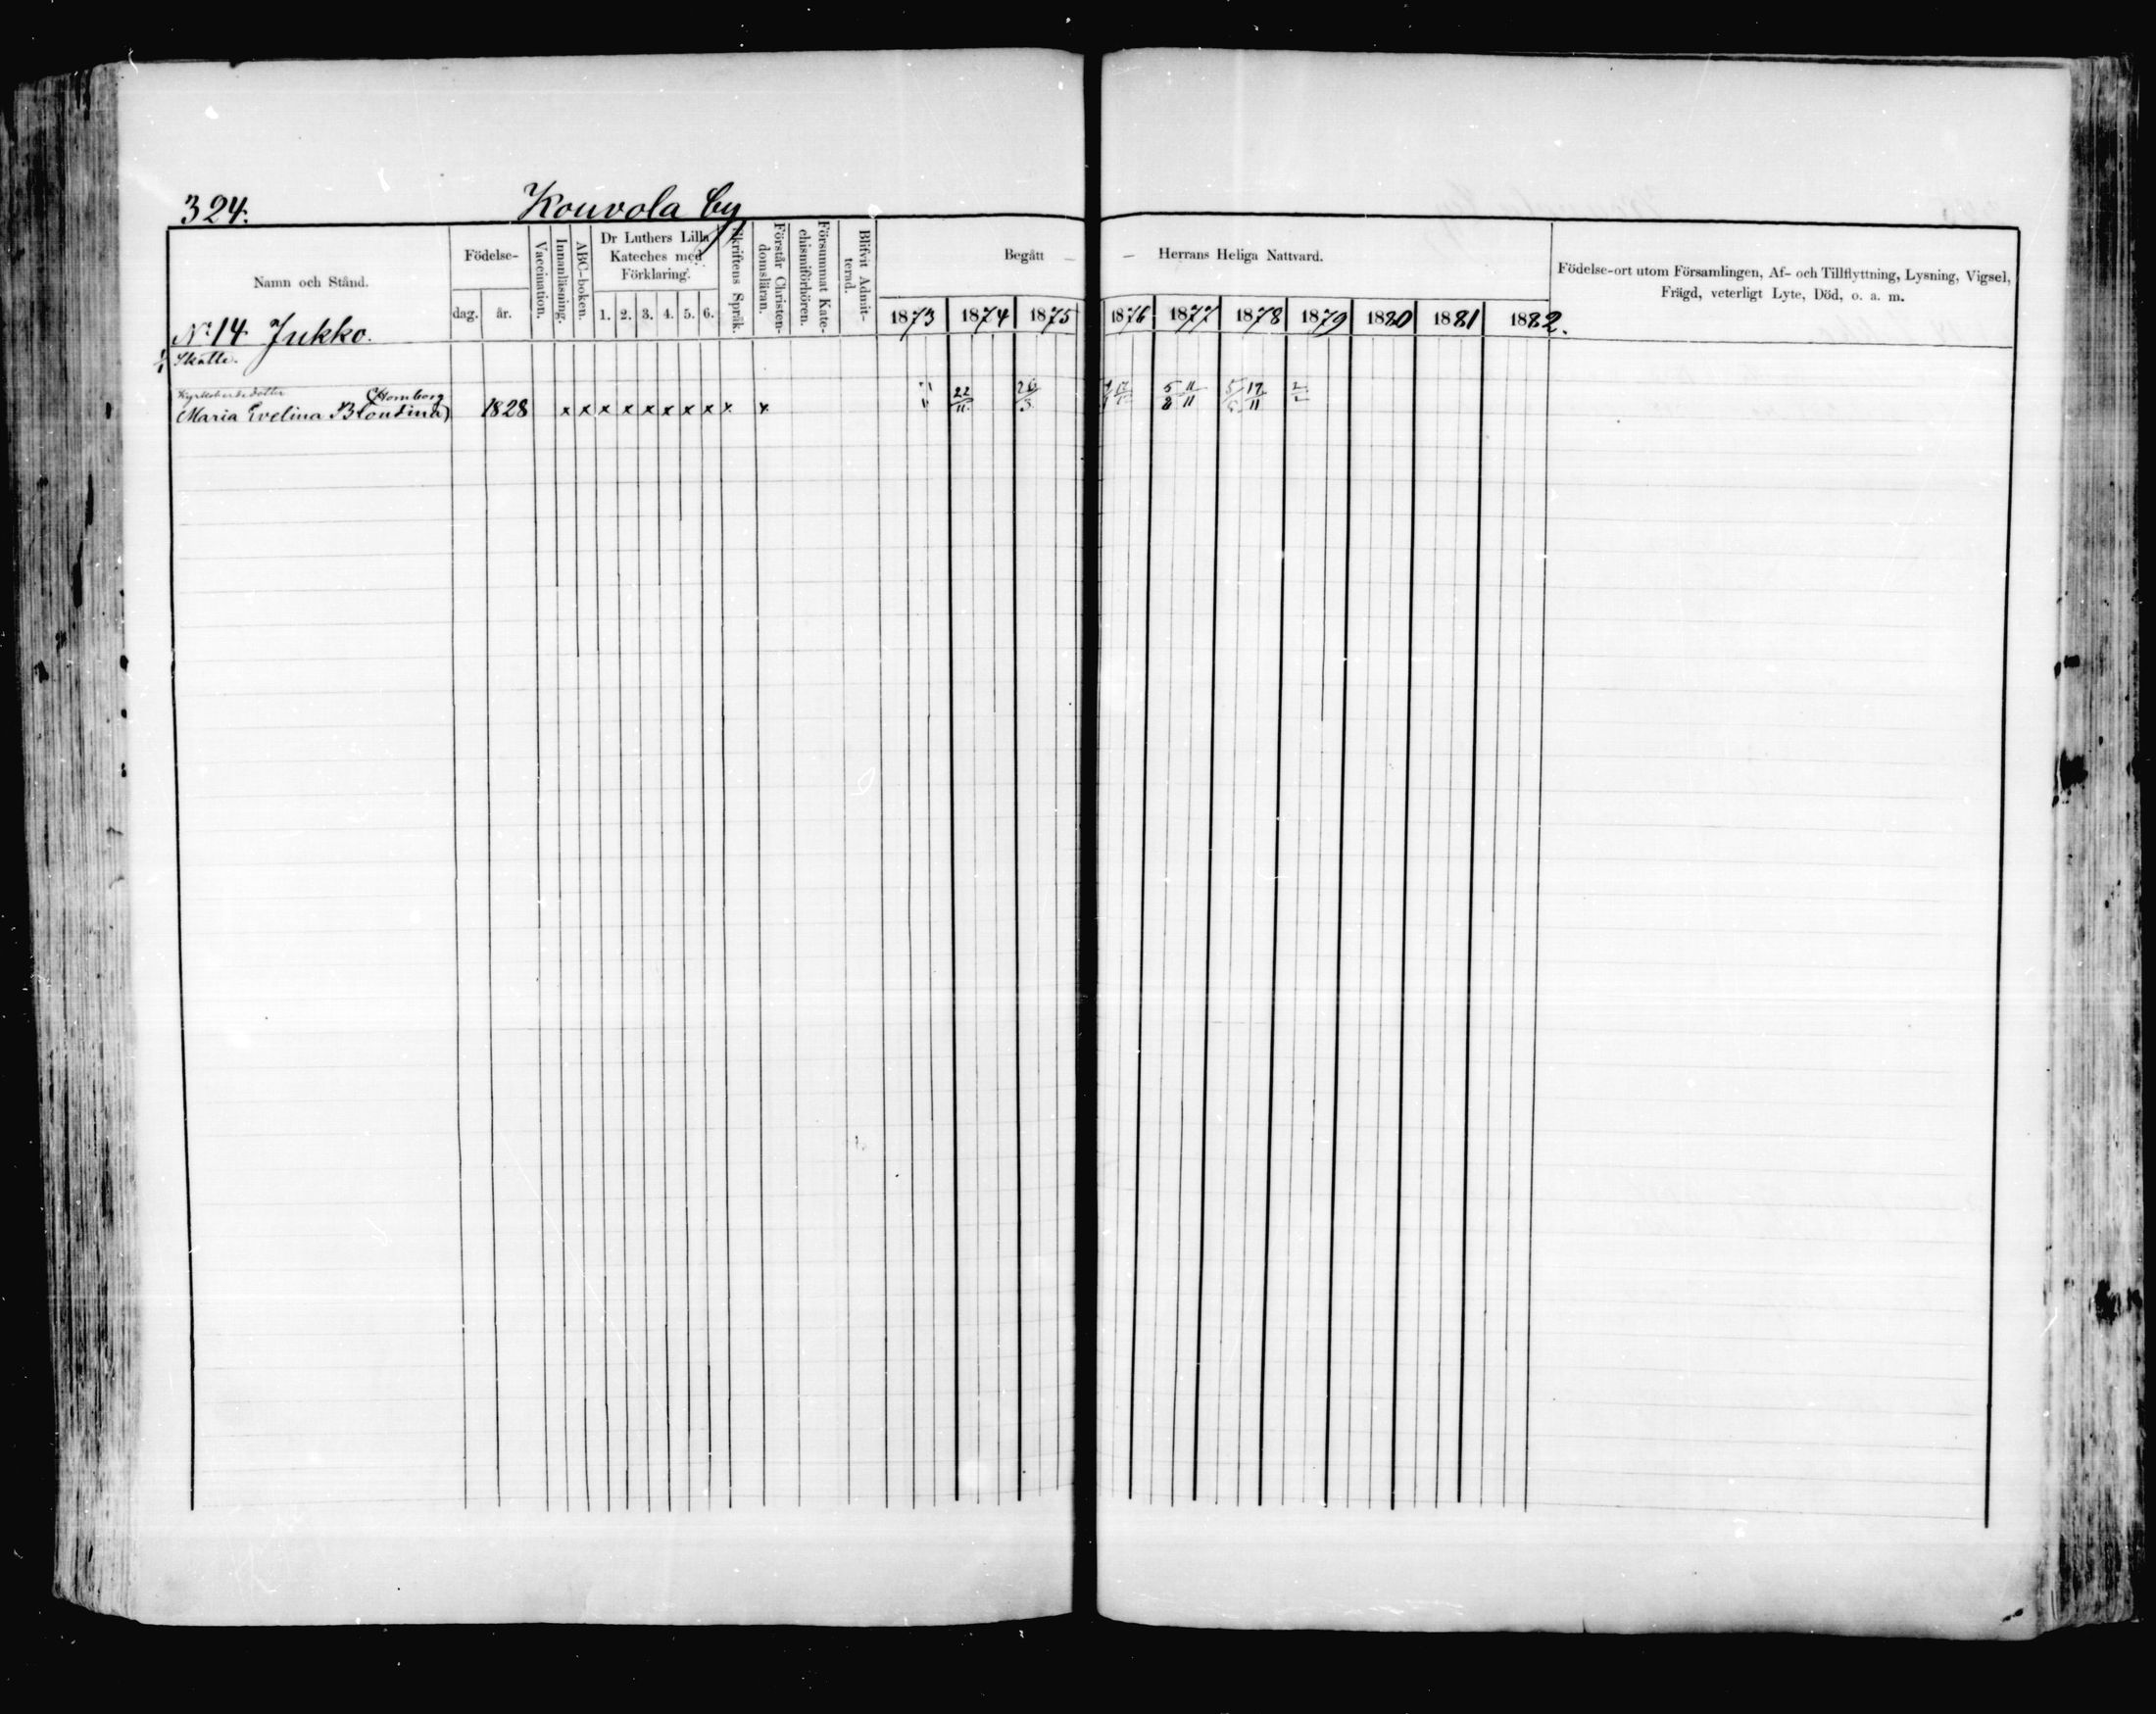 324.
Kouvola by
Namn och Stånd.
Födelse-
dag. år.
Vaccination.
Innanläsning.
ABC-boken.
Dr Luthers Lilla
Kateches med
Förklaring.
1. 2. 3. 4. 5. 6.
Skriftens Språk.
Förstår Christen-
domsläran.
Försummat Kate-
chismiförhören.
Blifvit Admit-
terad.
Begått — — Herrans Heliga Nattvard.
1873 1874 1875 1876 1877 1878 1879 1880 1881 1882.
Födelse-ort utom Församlingen, Af- och Tillflyttning, Lysning, Vigsel,
Frägd, veterligt Lyte, Död, o. a. m.
No 14 Jukko.
Skatte.
Homborg
Maria Evelina Blondina) 1828 x x x x x x x x x x
22/11 5/8 11/11 17/11